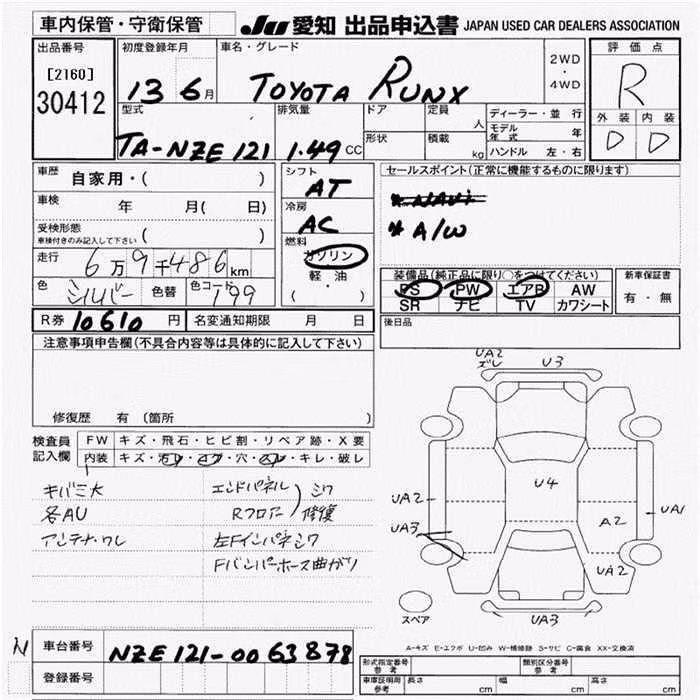 車内保管・守衛保管
JU 愛知 出品申込書 JAPAN USED CAR DEALERS ASSOCIATION
出品番号
[2160]
30412
初度登録年月
13 6月
車名・グレード
TOYOTA RUNX
2WD
・
4WD
評価点
R
外装 内装
D D
型式
TA-NZE121
排気量
1.49 CC
ドア
形状
定員
人
積載
kg
ディーラー・並行
モデル年式 年
ハンドル 左・右
車歴 自家用・( )
車検 年 月( 日)
受検形態
車検付きのみ記入して下さい ( )
走行 6万9千486km
色 シルバー 色替 色コード 199
シフト
AT
冷房
AC
燃料
ガソリン
軽・油
( )
セールスポイント(正常に機能するものに限ります)
* NAVi
* A/W
装備品(純正品に限り○をつけてください)
PS PW エアB AW
SR ナビ TV カワシート
新車保証書
有・無
R券 10610 円 名変通知期限 月 日
後日品
注意事項申告欄(不具合内容等は具体的に記入して下さい)
修復歴 有 (箇所 )
検査員
記入欄
FW キズ・飛石・ヒビ割・リペア跡・X要
内装 キズ・汚レ・コゲ・穴・スレ・キレ・破レ
キバミ大
各AU
アンテナワレ
エンドパネル
Rフロアー
シワ
修復
左Fインパネシワ
Fバンパーホース曲がり
UA2
ズレ
U3
U4
UA2
UA3
UA1
A2
UA2
UA3
スペア
A-キズ E-エクボ U-凹み W-補修跡 S-サビ C-腐食 XX-交換済
車台番号 NZE121-0063878
登録番号
形式指定番号
参考
類別区分番号
参考
車庫証明用
参考
長さ cm 幅 cm 高さ cm